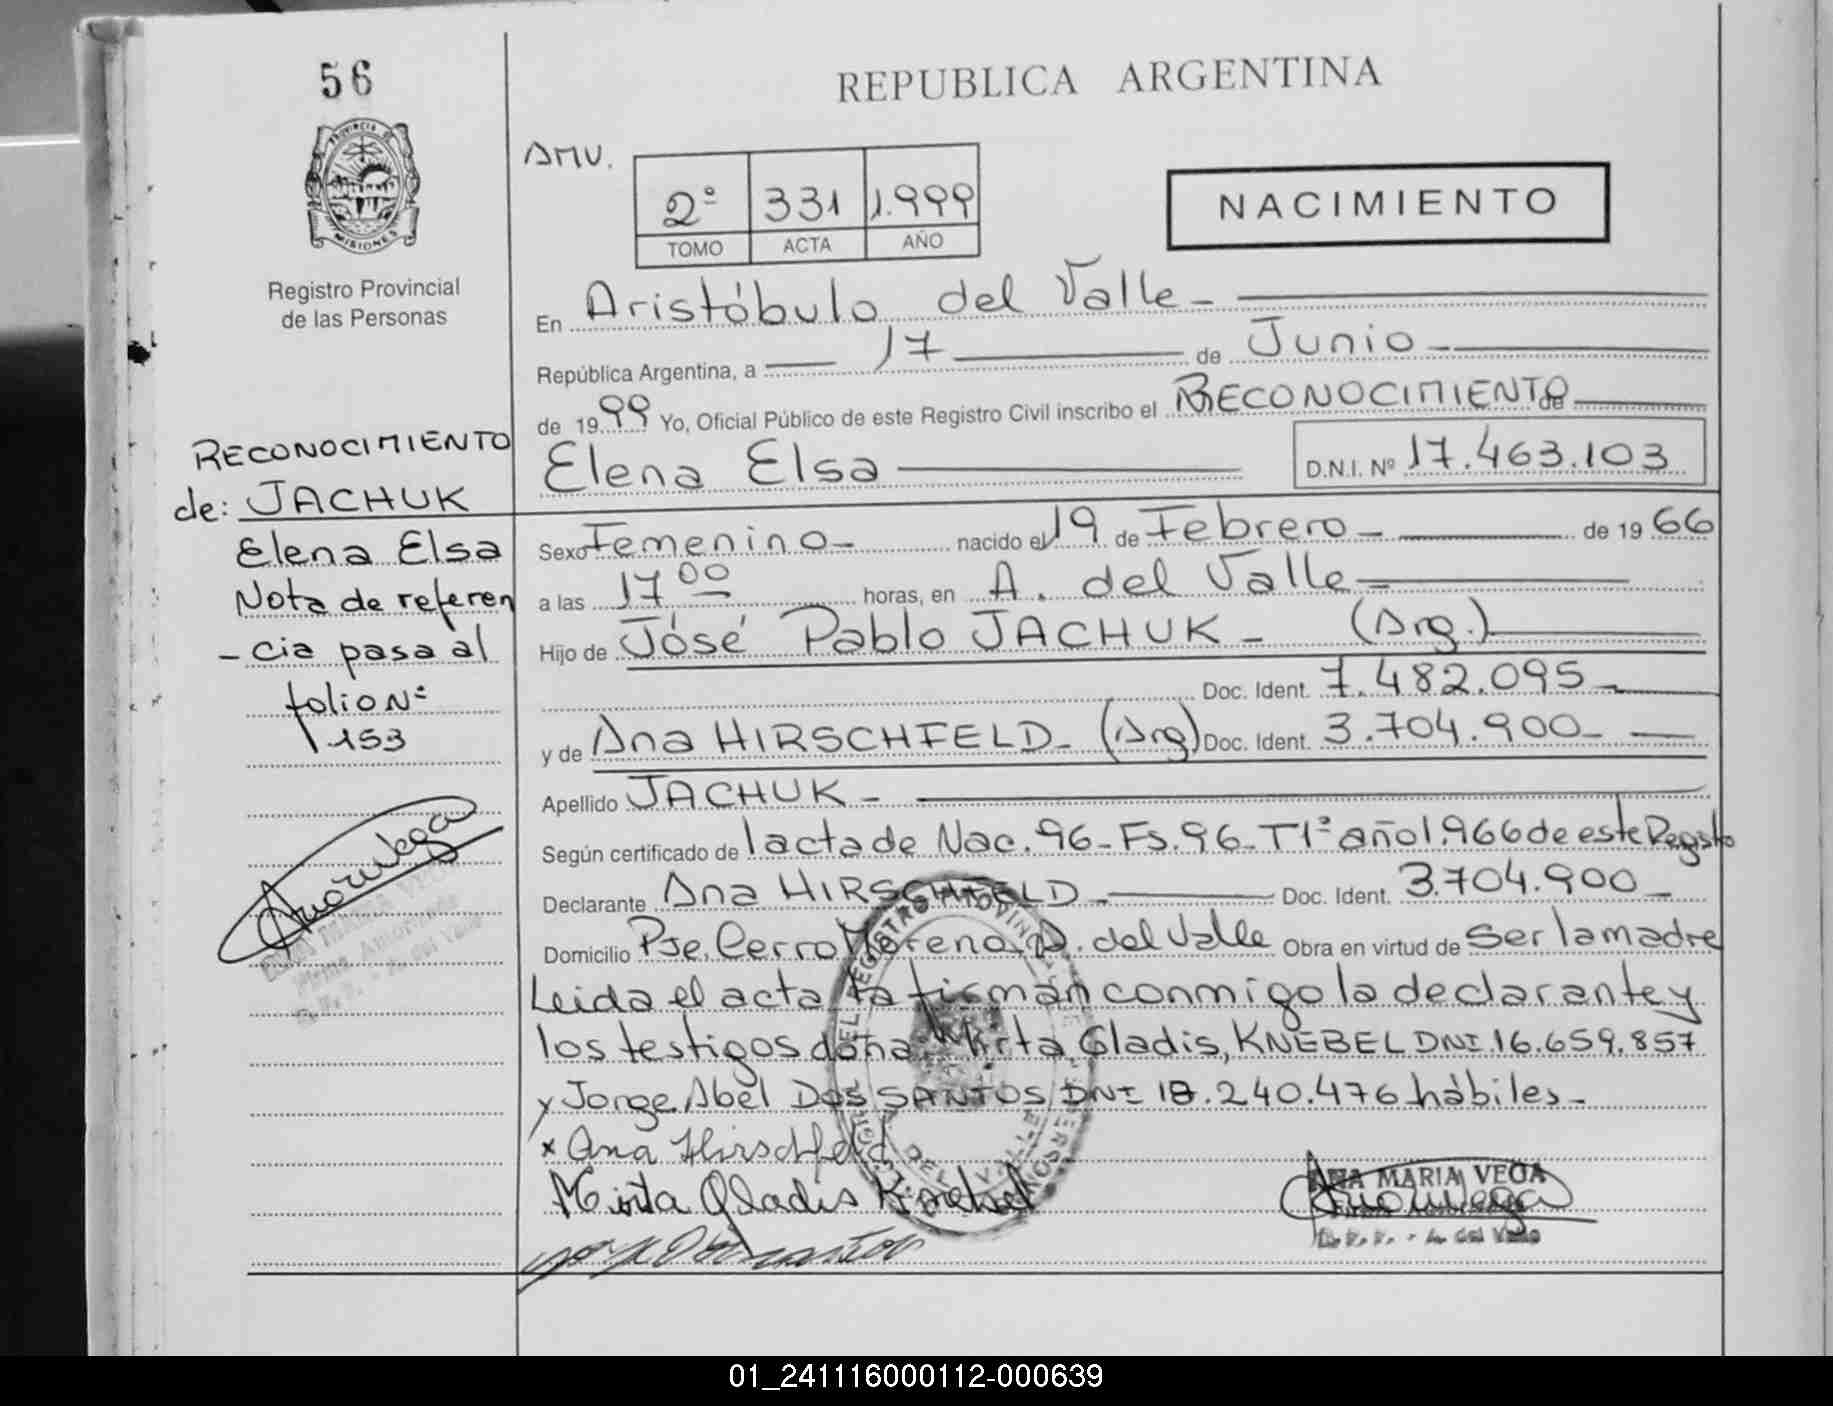 56
PROVINCIA DE
MISIONES
Registro Provincial
de las Personas
RECONOCIMIENTO
de: JACHUK
Elena Elsa
Nota de referen
- cia pasa al
folio Nº
153
REPUBLICA ARGENTINA
AMV.
2º 331 1.999
TOMO ACTA AÑO
NACIMIENTO
En Aristóbulo del Valle -
República Argentina, a 17 de Junio
de 1999 Yo, Oficial Público de este Registro Civil inscribo el RECONOCIMIENTO de
Elena Elsa D.N.I. Nº 17.463.103
Sexo Femenino - nacido el 19 de Febrero - de 1966
a las 17 00 horas, en A. del Valle -
Hijo de José Pablo JACHUK - (Arg.)
Doc. Ident. 7.482.095 -
y de Ana HIRSCHFELD - (Arg) Doc. Ident. 3.704.900 -
Apellido JACHUK -
Según certificado de lacta de Nac. 96 - Fs. 96 - T1º año 1.966 de este Registo
Declarante Ana HIRSCHFELD - Doc. Ident. 3.704.900 -
Domicilio Pje. Cerro Morena. A. del Valle Obra en virtud de Ser la madre
Leida el acta la firman conmigo la declarante y
los testigos doña Mirta Gladis, KNEBEL DNI 16.659.857
y Jorge Abel Dos SANTOS DNI 18.240.476 hábiles -
x Ana Hirschfeld
Mirta Gladis Knebel
ANA MARIA VEGA
A. del Valle
01_241116000112-000639